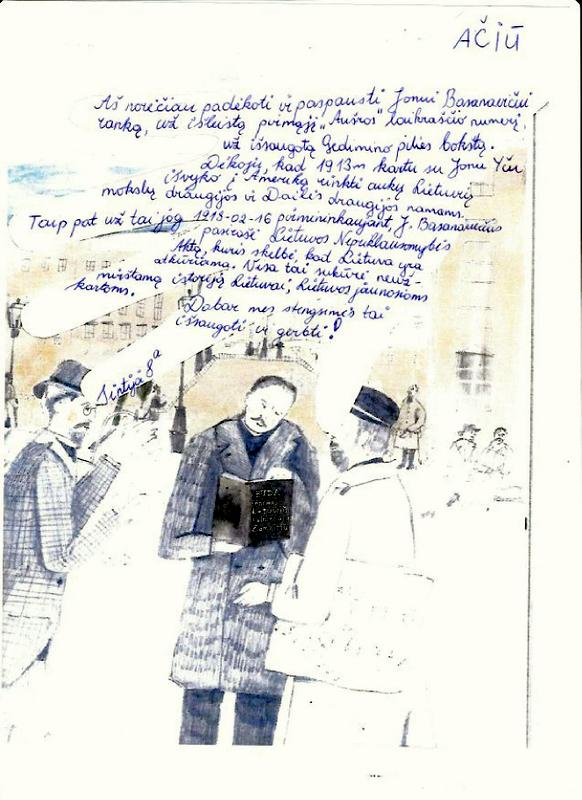 AČIŪ
Aš norėčiau padėkoti ir paspausti Jonui Basanavičiui
ranką, už išleistą pirmąjį „Aušros" laikraščio numerį,
už išsaugotą Gedimino pilies bokštą.
Dėkoju, kad 1913m kartu su Jonu Yču
išvyko į Ameriką rinkti aukų Lietuvių
mokslų draugijos ir Dailės draugijos namams.
Taip pat už tai jog 1918-02-16 pirmininkaujant, J. Basanavičius
pasirašė Lietuvos Nepriklausomybės
Aktą, kuris skelbė, kad Lietuva yra
atkuriama. Visa tai sukūrė neuž-
mirštamą istoriją Lietuvai, Lietuvos jaunosioms
kartoms.
Dabar mes stengsimės tai
išsaugoti ir gerbti!
8ª